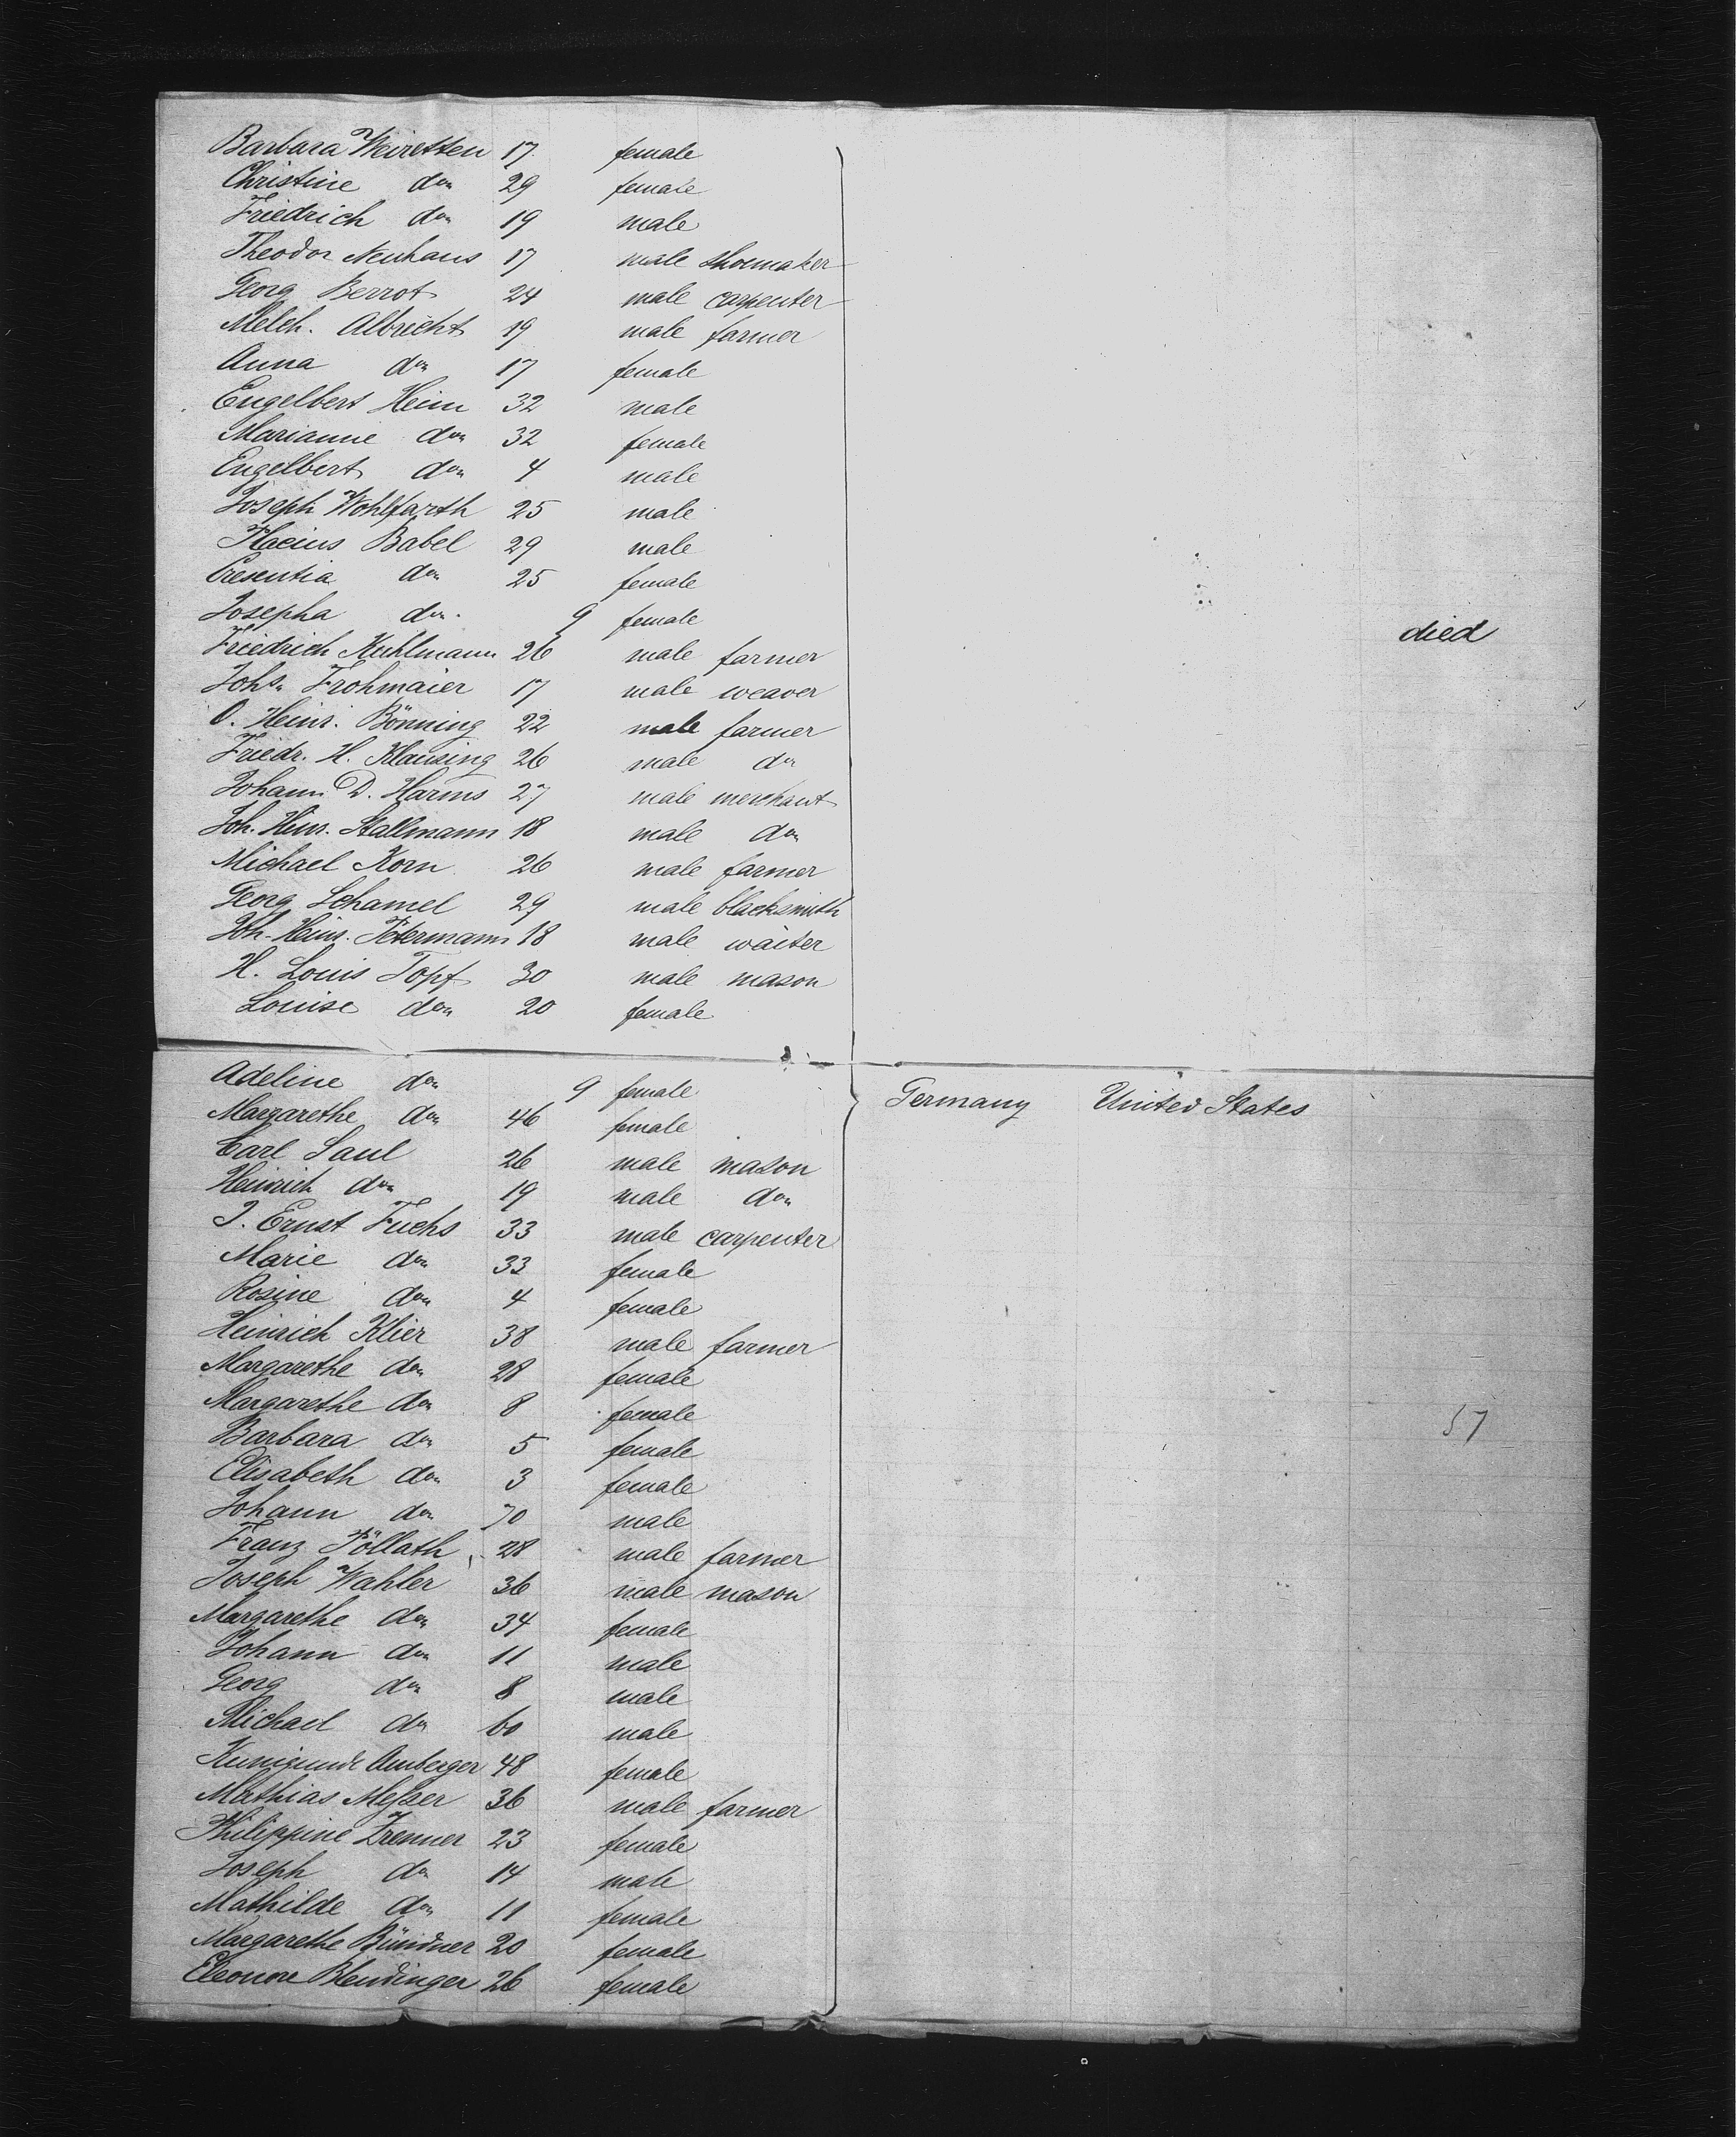 Barbara Weiretten 17 female
Christine do 29 female
Friedrich do 19 male
Theodor Neuhaus 17 male shoemaker
Georg Berrot 24 male carpenter
Melch. Albrecht 19 male farmer
Anna do 17 female
Engelbert Heim 32 male
Marianne do 32 female
Engelbert do 4 male
Joseph Wohlfarth 25 male
Babel 29 male
Cresentia do 25 female
Josepha do 9 female died
Friedrich Kuhlmann 26 male farmer
Johs. Frohmaier 17 male weaver
O. Heinr. Bönning 22 male farmer
Friedr. H. Klausing 26 male do
Johann D. Harms 27 male merchant
Joh. Hinr. Stallmann 18 male do
Michael Korn 26 male farmer
Georg Schamel 29 male blacksmith
Joh. Heinr. Petermann 18 male waiter
H. Louis Topf 30 male mason
Louise do 20 female
Adeline do 9 female Germany United States
Margarethe do 46 female
Carl Saul 26 male mason
Heinrich do 19 male do
J. Ernst Fuchs 33 male carpenter
Marie do 33 female
Rosine do 4 female
Heinrich Klier 38 male farmer
Margarethe do 28 female
Margarethe do 8 female
57
Barbara do 5 female
Elisabeth do 3 female
Johann do 70 male
Franz Pöllath 28 male farmer
Joseph Wahler 36 male mason
Margarethe do 34 female
Johann do 11 male
Georg do 8 male
Michael do 60 male
Kunigunde Amberger 48 female
Mathias Meßer 36 male farmer
Philippine Zrenner 23 female
Joseph do 14 male
Mathilde do 11 female
Margarethe Bündner 20 female
Eleonore Blendinger 26 female